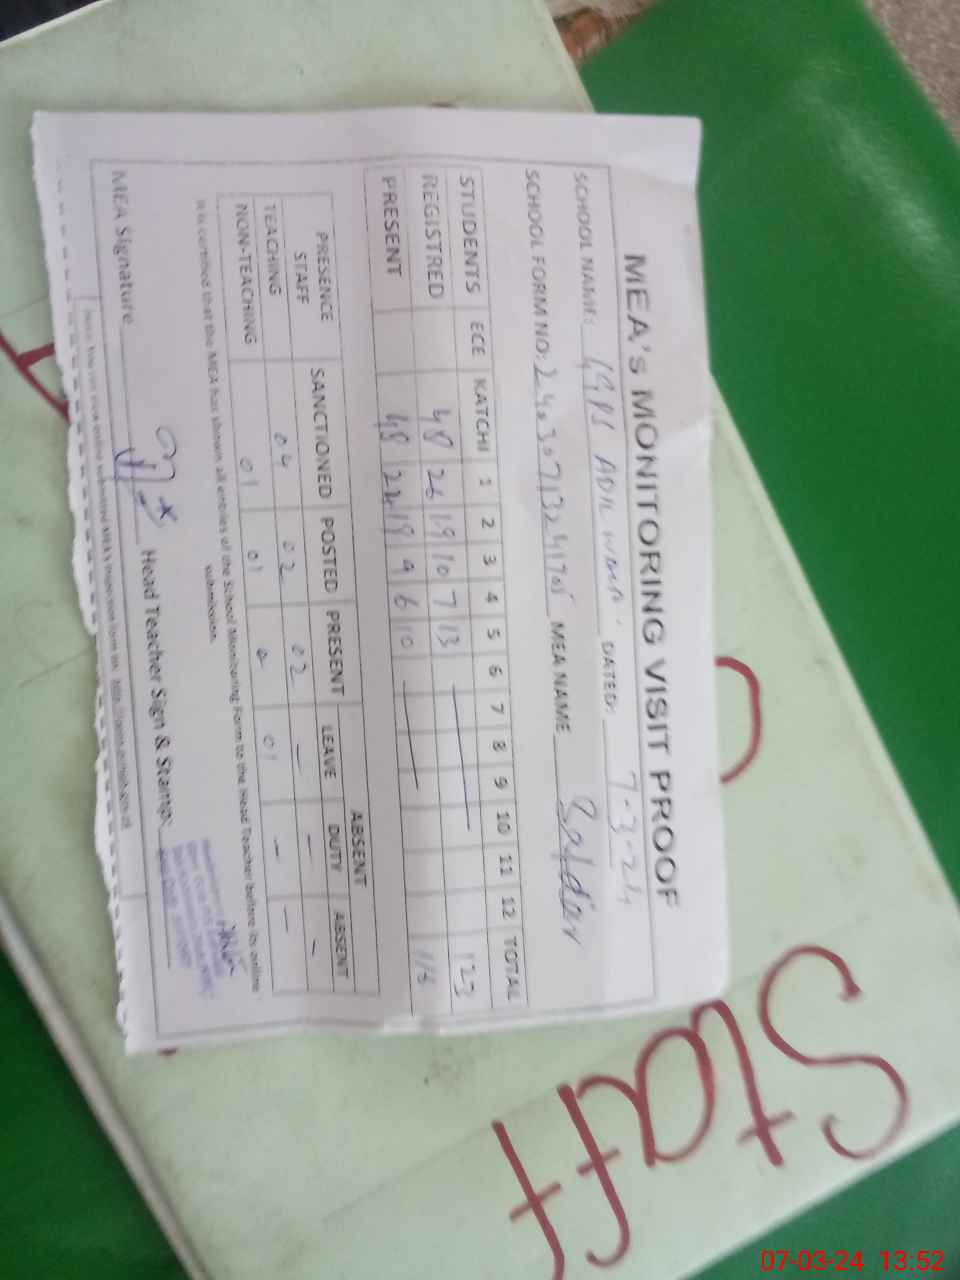 MEA's MONITORING VISIT PROOF
SCHOOL NAME: DATED: 7-3-24
SCHOOL FORM NO: MEA NAME Safdar
STUDENTS ECE KATCHI 1 2 3 4 5 6 7 8 9 10 11 12 TOTAL
REGISTRED 48 26 19 10 7 13 123
PRESENT 48 22 19 9 6 10
PRESENCE STAFF SANCTIONED POSTED PRESENT ABSENT
LEAVE DUTY ABSENT
TEACHING 04 02 02 — — —
NON-TEACHING 01 01 0 01 — —
It is certified that the MEA has shown all entries of the School Monitoring Form to the Head Teacher before its online
submission.
MEA Signature Head Teacher Sign & Stamp:
Staff
07-03-24 13:52